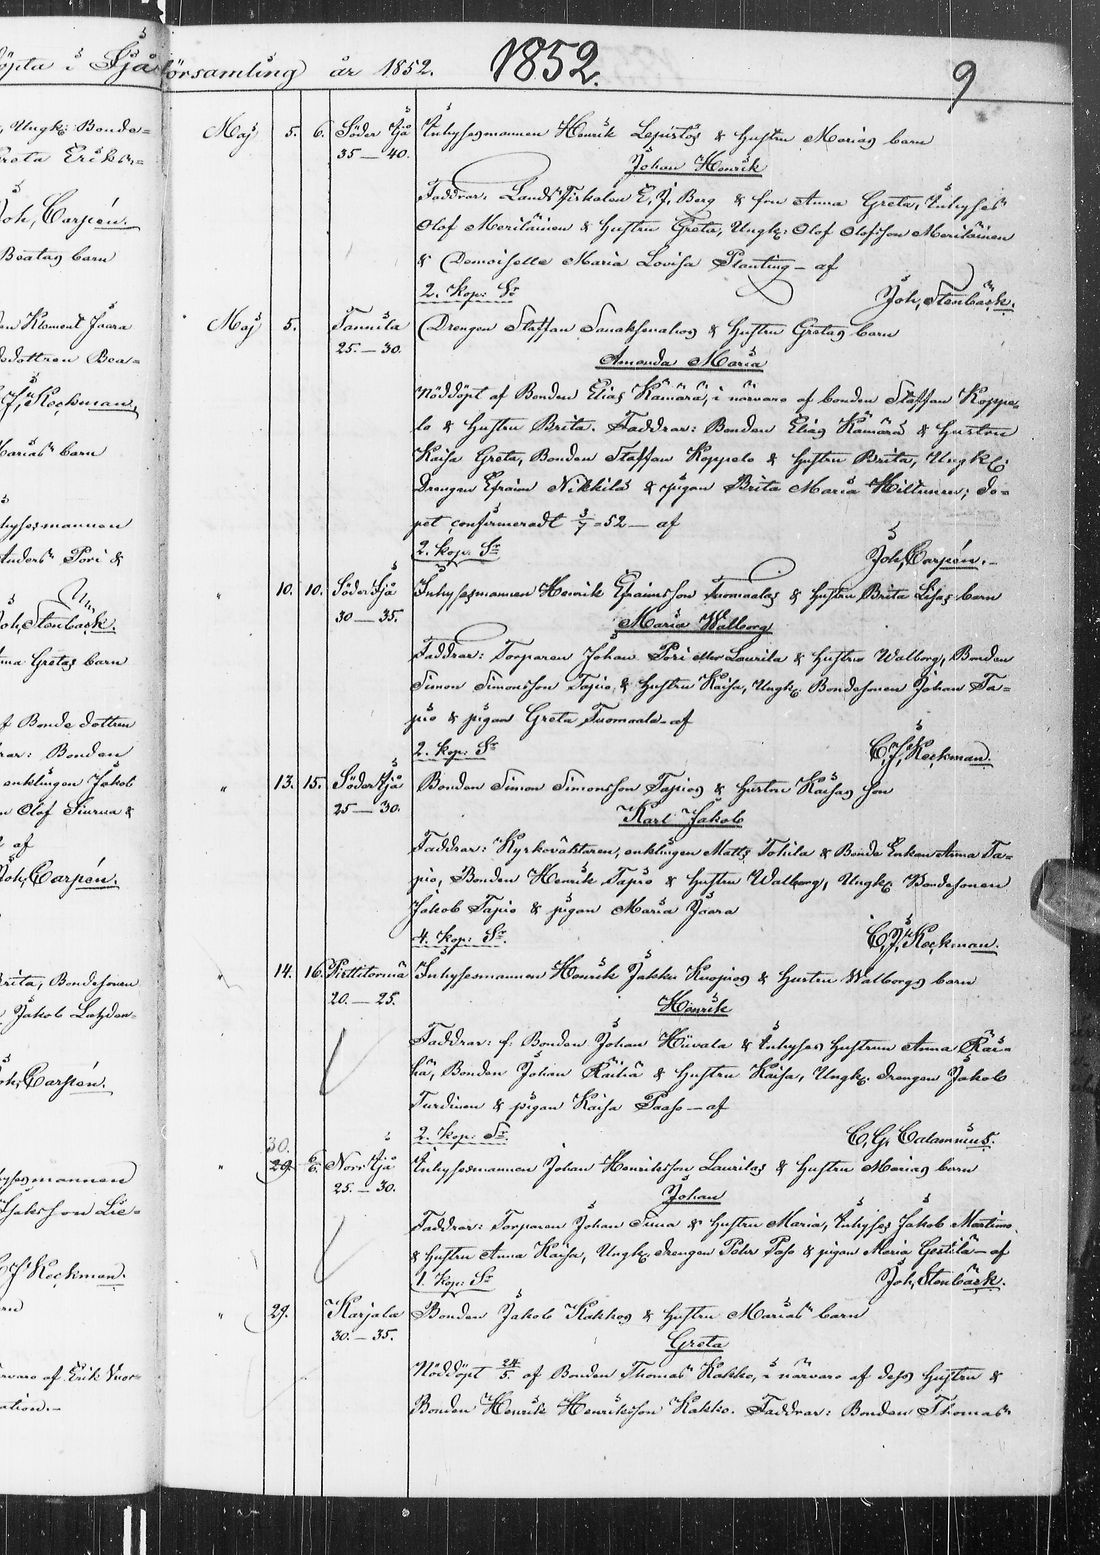 öpta i Ijå
församling år 1852.
1852.
9
, Ungk: Bonde=
reta Eriks=
Joh, Carpén.
Beatas barn
en Klement Jaara
dedottren Bea=
C, J, Keckman.
Marias barn
hysesmannen
Anders Pori &
Joh, Stenbäck.
nna Gretas barn
f Bonde dottren
rar: Bonden
enklingen Jakob
n Olof Siurua &
af
Joh, Carpén.
Brita, Bondesonen
Joh, Carpén.
ysesmannen
C, J, Keckman.
rvaro af Erik
ation.-
Maj 5. 6. Söder Ijå 35-40. Inhysesmannen Henrik Lepistös & Hustru Marias barn
Johan Henrik
Faddrar: Lands Fiskalen E, J, Berg & fru Anna Greta, Inhyses
Olof Meriläinen & Hustru Greta, Ungk: Olof Olofsson Meriläinen
& Demoiselle Maria Lovisa Planting - af
2. Kop: Sr Joh, Stenbäck.
Maj 5. Tannila 25.-30. Drengen Staffan & Hustru Gretas barn
Amanda Maria
Nöddöpt af Bonden Elias Kämärä, i närvaro af bonden Staffan Koppe-
lo & Hustru Brita. Faddrar: Bonden Elias Kämärä & Hustru
Kaisa Greta, Bonden Staffan Koppelo & Hustru Brita, Ungk:
Drengen Efraim Nikkilä & pigan Brita Maria Hiltunen; do=
pet confirmeradt 3/7 =52 - af
2. Kop: Sr Joh, Carpén.-
" 10. 10. Söder Ijå 30-35. Inhysesmannen Henrik Efraimsson Tuomaalas & Hustru Brita Lisas barn
Maria Walborg
Faddrar: Torparen Johan Pori eller Laurila & Hustru Walborg, Bonden
Simon Simonsson Tapio, & Hustru Kaisa, Ungk: Bondesonen Johan Ta=
pio & pigan Greta Tuomaala - af
2. Kop: Sr C, J, Keckman.
" 13. 15. Söder Ijå 25-30. Bonden Simon Simonsson Tapios & Hustru Kaisas son
Karl Jakob
Faddrar: Kyrkoväktaren, enklingen Matts Tohila & Bonde Enkan Anna Ta=
pio, Bonden Henrik Tapio & Hustru Walborg, Ungk: Bondesonen
Jakob Tapio & pigan Maria Jaara
4. Kop: Sr. C, J, Keckman.
" 14. 16. Piettilornia 20.-25. Inhysesmannen Henrik Jakku Kuopios & Hustru Walborgs barn
Henrik
Faddrar: f: Bonden Johan Hiivala & Inhyses Hustrun Anna Räi-
hä, Bonden Johan Räihä & Hustru Kaisa, Ungk: drengen Jakob
Turdinen & pigan Kaisa Paaso - af
2. Kop: Sr. C, G, Calamnius.
" 30. 29. 6/6. Norr Ijå 25.-30. Inhysesmannen Johan Henriksson Laurilas & Hustru Marias barn
Johan
Faddrar: Torparen Johan Sima & Hustru Maria, Inhyses Jakob Martimo
& Hustru Anna Kaisa, Ungk: drengen Petter Paso & pigan Maria Gestilä - af
1. Kop: Sr Joh, Stenbäck.
" 29. Karjala 30.-35. Bonden Jakob Kakkos & Hustru Marias barn
Greta
Nöddöpt 24/5 af Bonden Thomas Kakko, i närvaro af dess Hustru &
Bonden Henrik Henriksson Kakko. Faddrar: Bonden Thomas